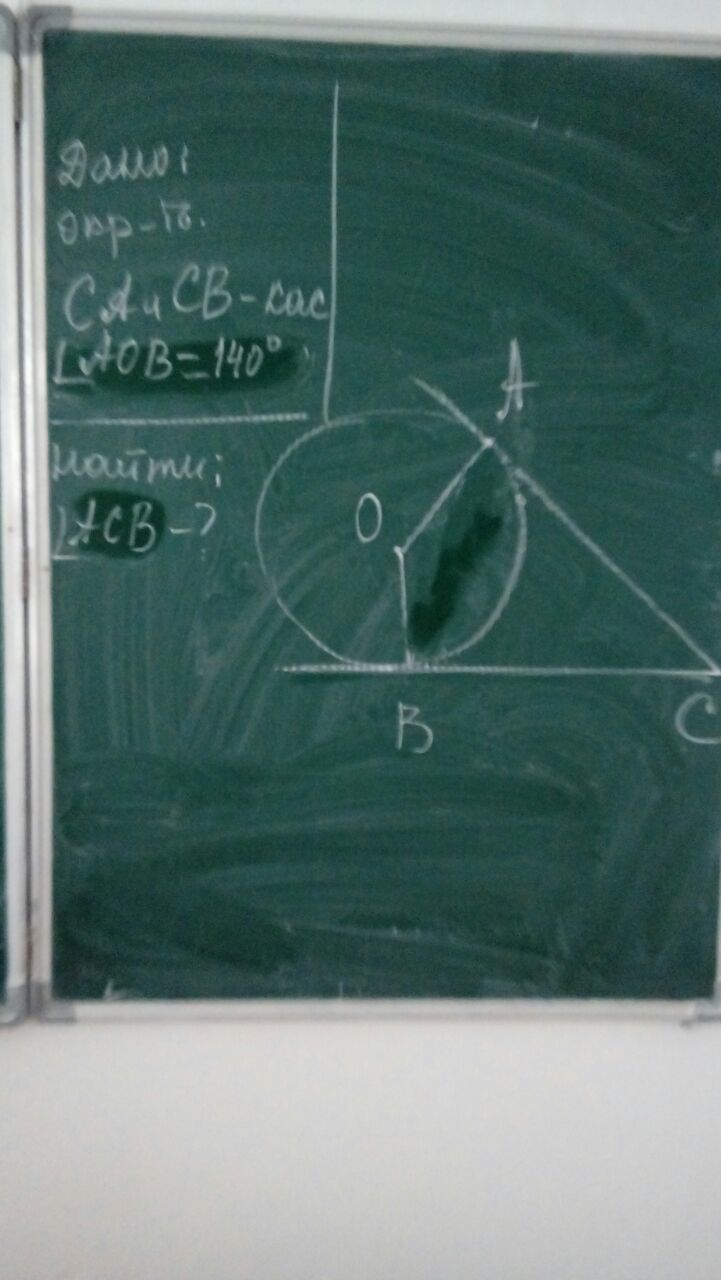 Дано:
окр-ть.
CA и CB - кас
∠AOB = 140°
Найти:
∠ACB - ?
A
O
B
C